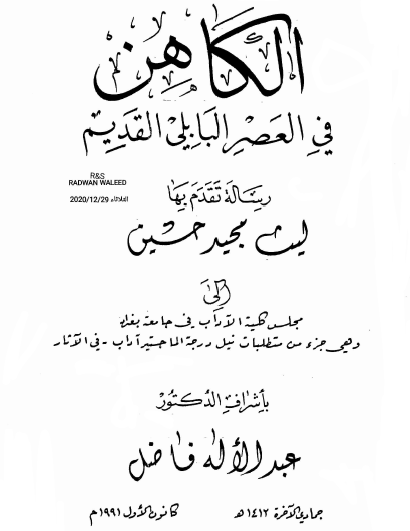 الكاهن
في العصر البابلي القديم
R&S
RADWAN WALEED
الثلاثاء 2020/12/29
رسالة تقدم بها
ليث مجيد حسين
إلى
مجلس كلية الآداب في جامعة بغداد
وهي جزء من متطلبات نيل درجة الماجستير آداب - في الآثار
بأشراف الدكتور
عبد الأله فاضل
جمادي الآخرة ١٤١٢ هـ كانون الأول ١٩٩١ م